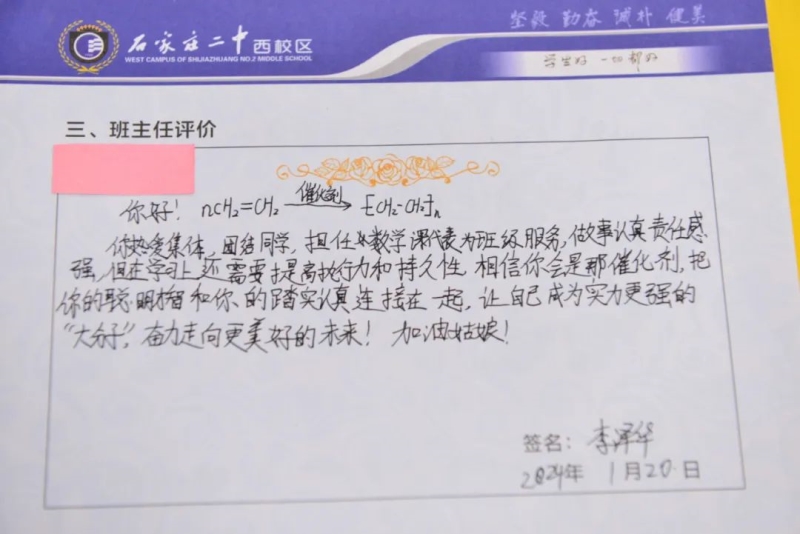 坚毅 勤奋 诚朴 健美
石家庄二中西校区
WEST CAMPUS OF SHIJIAZHUANG NO.2 MIDDLE SCHOOL
学生好 一切都好
三、班主任评价
你好! nCH₂=CH₂ 催化剂→ [CH₂-CH₂]n
你热爱集体,团结同学,担任数学课代表为班级服务,做事认真责任感
强,但在学习上还需要提高执行力和持久性,相信你会是那催化剂,把
你的聪明才智和你的踏实认真连接在一起,让自己成为实力更强的
“大分子”,奋力走向更美好的未来! 加油姑娘!
签名:李泽华
2024年 1月20日